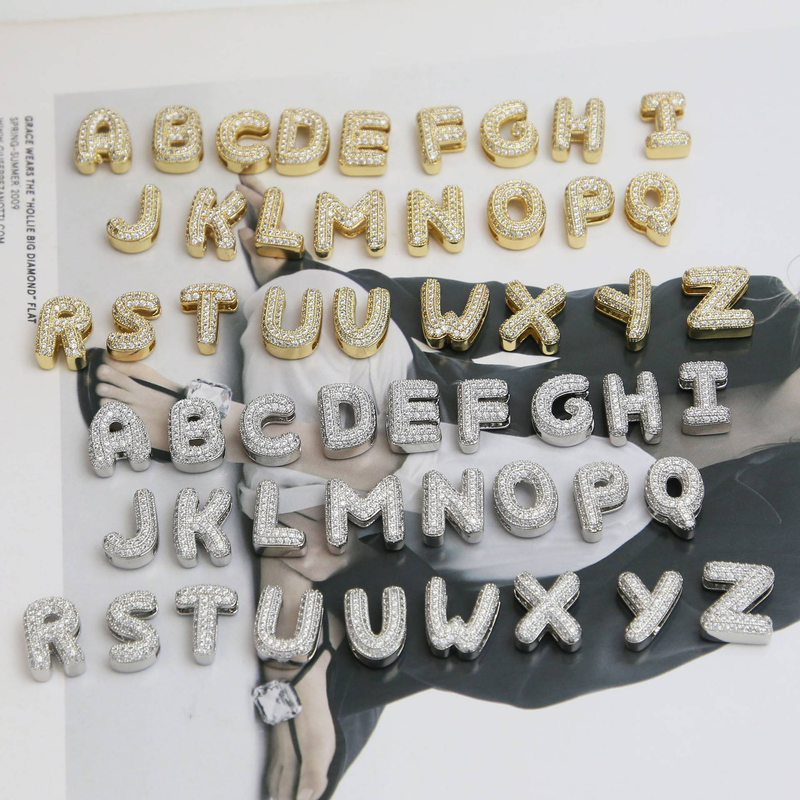 GRACE WEARS THE "HOLLIE BIG DIAMOND" FLAT
SPRING-SUMMER 2009
A B C D E F G H I
J K L M N O P Q
R S T U U W X Y Z
A B C D E F G H I
J K L M N O P Q
R S T U U W X Y Z